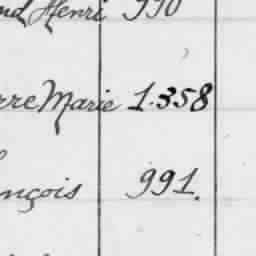 nd Henri 990
rre Marie 1.358
nçois 991.